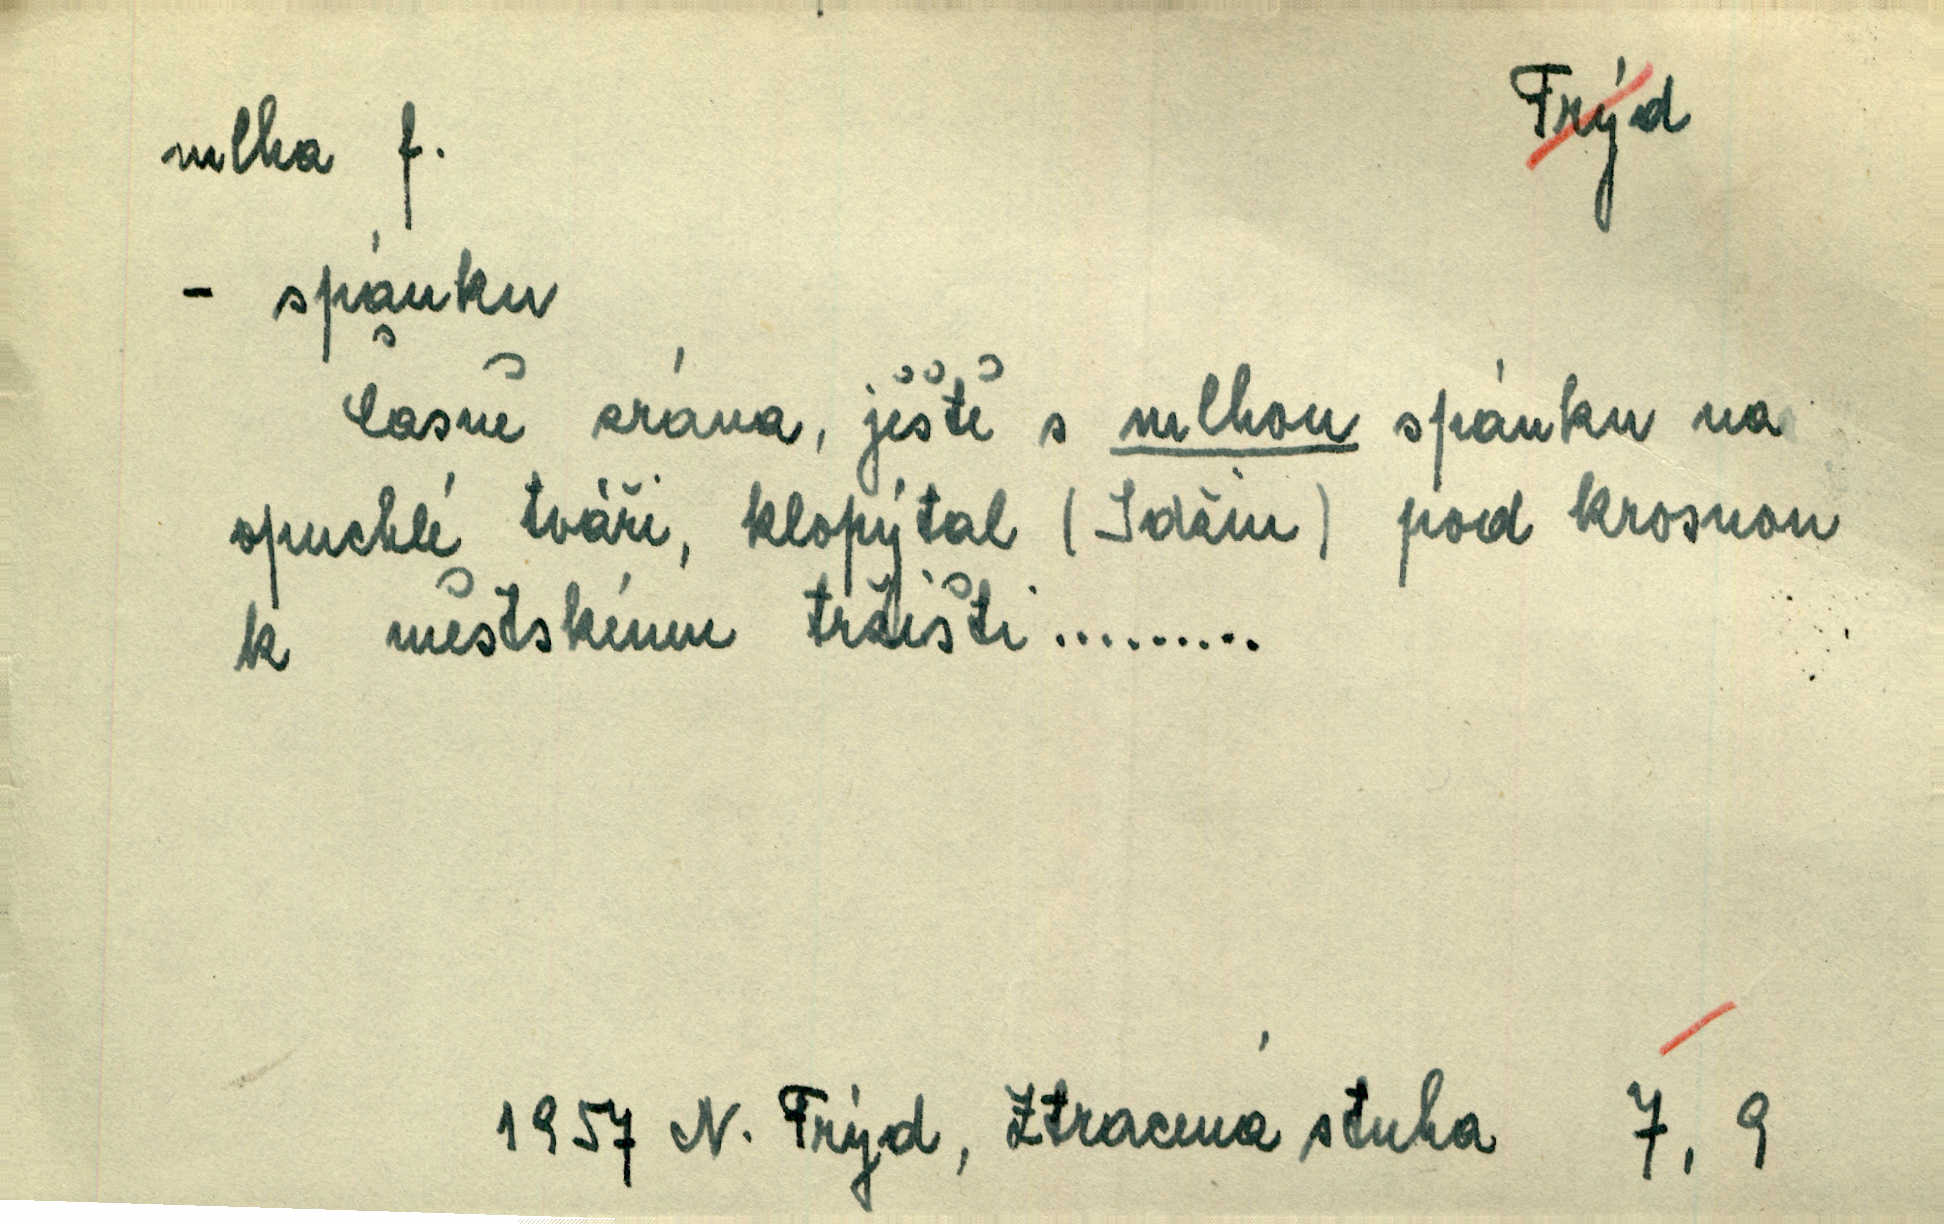 Frýd
mlha f.
- spánku
Časně zrána, ještě s mlhou spánku na
opuchlé tváři, klopýtal (Idžin) pod krosnou
k městskému tržišti.........
1957 N. Frýd, Ztracená stuha 7, 9